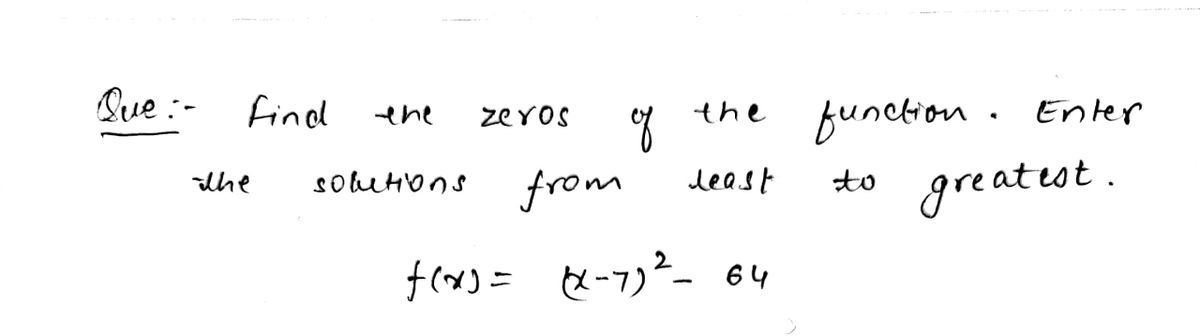 Que :- find the zeros of the function. Enter
the solutions from least to greatest.
f(x) = (x-7)² - 64